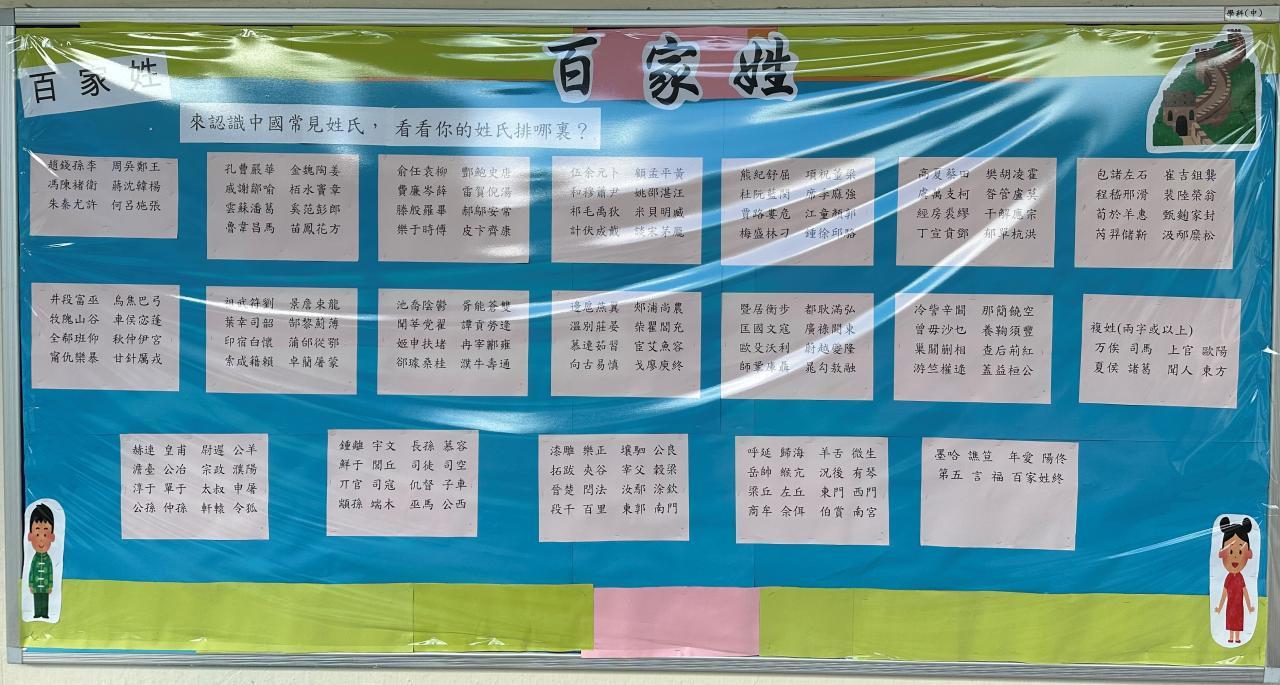 學科(中)
百家姓
百家姓
來認識中國常見姓氏，看看你的姓氏排哪裏？
趙錢孫李 周吳鄭王
馮陳褚衛 蔣沈韓楊
朱秦尤許 何呂施張
孔曹嚴華 金魏陶姜
戚謝鄒喻 柏水竇章
雲蘇潘葛 奚范彭郎
魯韋昌馬 苗鳳花方
俞任袁柳 酆鮑史唐
費廉岑薛 雷賀倪湯
滕殷羅畢 郝鄔安常
樂于時傅 皮卞齊康
伍余元卜 顧孟平黃
和穆蕭尹 姚邵湛汪
祁毛禹狄 米貝明臧
計伏成戴
熊紀舒屈 項祝董梁
杜阮藍閔 席季麻強
賈路婁危 江童顏郭
梅盛林刁 鍾徐邱駱
高夏蔡田 樊胡凌霍
虞萬支柯 昝管盧莫
經房裘繆 干解應宗
丁宣賁鄧 郁單杭洪
包諸左石 崔吉鈕龔
程嵇邢滑 裴陸榮翁
荀於羊惠 甄麴家封
芮羿儲靳 汲邴糜松
井段富巫 烏焦巴弓
牧隗山谷 車侯宓蓬
全郗班仰 秋仲伊宮
甯仇欒暴 甘針厲戎
祖武符劉 景詹束龍
葉幸司韶 郜黎薊薄
印宿白懷 蒲邰從鄂
索咸籍賴 卓藺屠蒙
池喬陰鬱 胥能蒼雙
聞莘党翟 譚貢勞逄
姬申扶堵 冉宰酈雍
郤璩桑桂 濮牛壽通
邊扈燕冀 郟浦尚農
溫別莊晏 柴瞿閻充
慕連茹習 宦艾魚容
向古易慎 戈廖庾終
暨居衡步 都耿滿弘
匡國文寇 廣祿闕東
歐殳沃利 蔚越夔隆
師鞏庫聶 晁勾敖融
冷訾辛闞 那簡饒空
曾毋沙乜 養鞠須豐
巢關蒯相 查后荊紅
游竺權逯 蓋益桓公
複姓(兩字或以上)
万俟 司馬 上官 歐陽
夏侯 諸葛 聞人 東方
赫連 皇甫 尉遲 公羊
澹臺 公冶 宗政 濮陽
淳于 單于 太叔 申屠
公孫 仲孫 軒轅 令狐
鍾離 宇文 長孫 慕容
鮮于 閭丘 司徒 司空
亓官 司寇 仉督 子車
顓孫 端木 巫馬 公西
漆雕 樂正 壤駟 公良
拓跋 夾谷 宰父 穀梁
晉楚 閆法 汝鄢 涂欽
段干 百里 東郭 南門
呼延 歸海 羊舌 微生
岳帥 緱亢 況後 有琴
梁丘 左丘 東門 西門
商牟 佘佴 伯賞 南宮
墨哈 譙笪 年愛 陽佟
第五 言 福 百家姓終